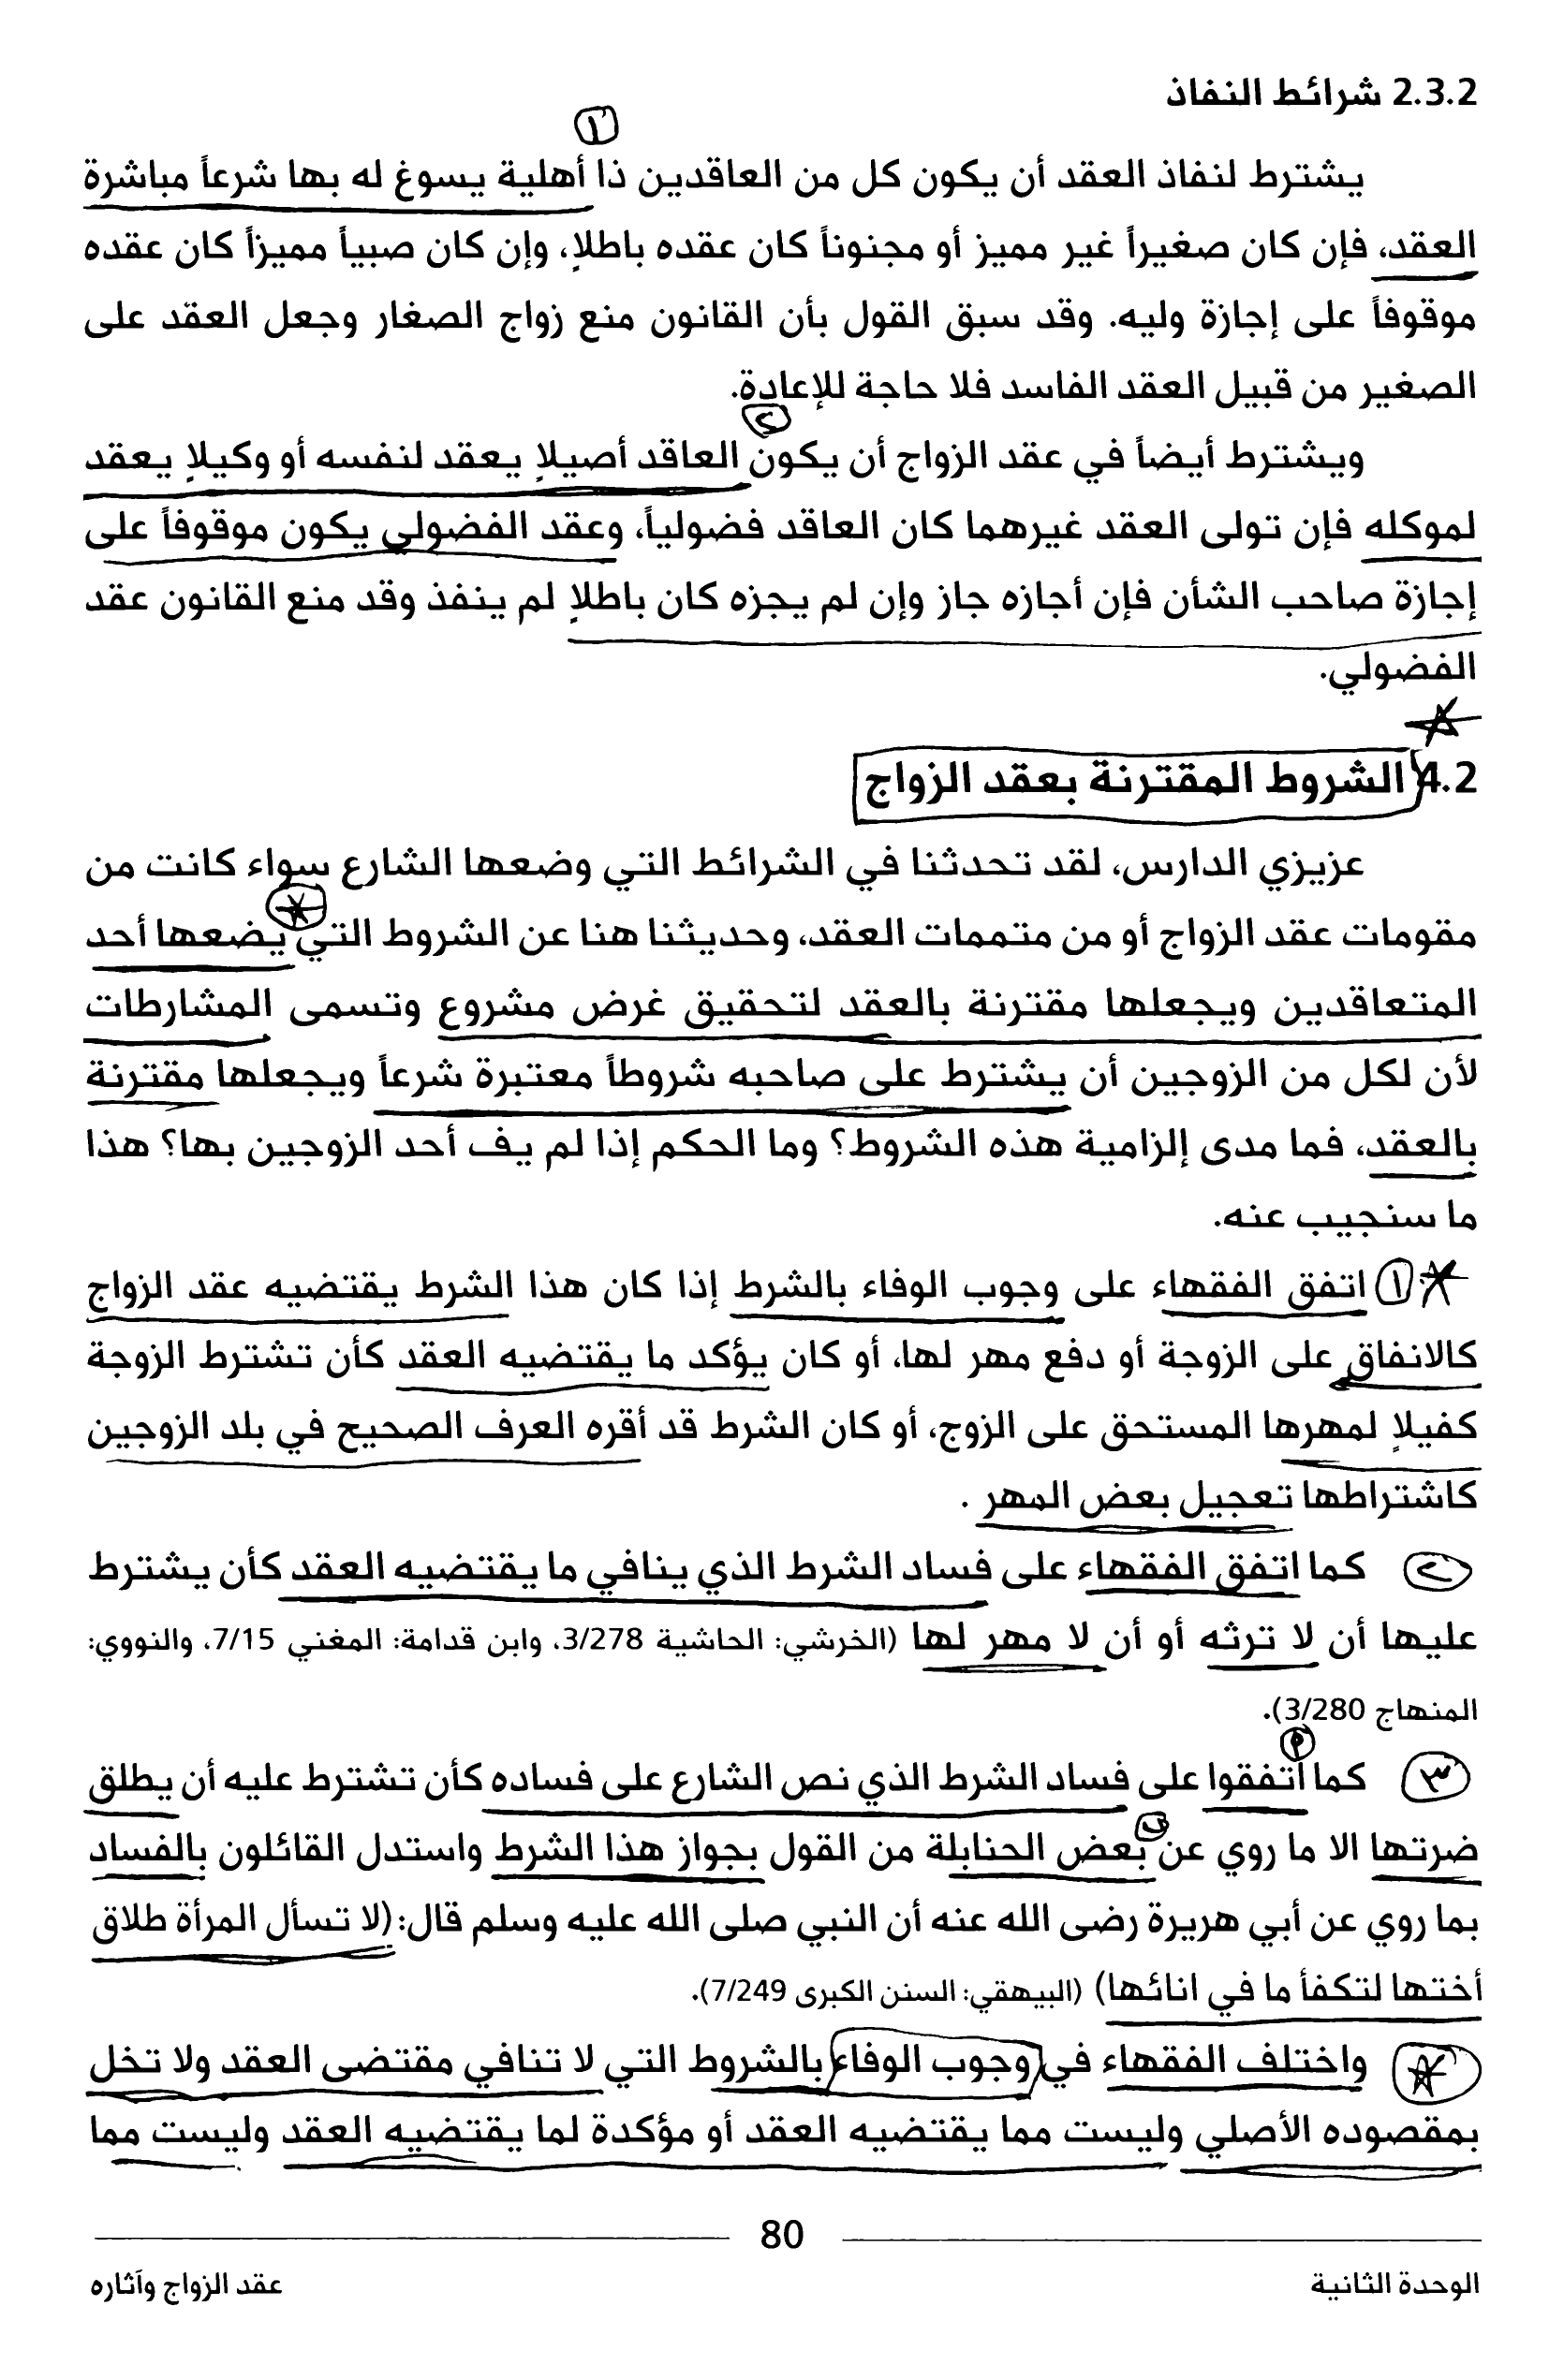 2.3.2 شرائط النفاذ
١
يشترط لنفاذ العقد أن يكون كل من العاقدين ذا أهلية يسوغ له بها شرعاً مباشرة
العقد، فإن كان صغيراً غير مميز أو مجنوناً كان عقده باطلاٍ، وإن كان صبياً مميزاً كان عقده
موقوفاً على إجازة وليه. وقد سبق القول بأن القانون منع زواج الصغار وجعل العقد على
الصغير من قبيل العقد الفاسد فلا حاجة للإعادة.
٢
ويشترط أيضاً في عقد الزواج أن يكون العاقد أصيلاٍ يعقد لنفسه أو وكيلاٍ يعقد
لموكله فإن تولى العقد غيرهما كان العاقد فضولياً، وعقد الفضولي يكون موقوفاً على
إجازة صاحب الشأن فإن أجازه جاز وإن لم يجزه كان باطلاٍ لم ينفذ وقد منع القانون عقد
الفضولي.
4.2 الشروط المقترنة بعقد الزواج
عزيزي الدارس، لقد تحدثنا في الشرائط التي وضعها الشارع سواء كانت من
مقومات عقد الزواج أو من متممات العقد، وحديثنا هنا عن الشروط التي يضعها أحد
المتعاقدين ويجعلها مقترنة بالعقد لتحقيق غرض مشروع وتسمى المشارطات
لأن لكل من الزوجين أن يشترط على صاحبه شروطاً معتبرة شرعاً ويجعلها مقترنة
بالعقد، فما مدى إلزامية هذه الشروط؟ وما الحكم إذا لم يف أحد الزوجين بها؟ هذا
ما سنجيب عنه.
١ اتفق الفقهاء على وجوب الوفاء بالشرط إذا كان هذا الشرط يقتضيه عقد الزواج
كالانفاق على الزوجة أو دفع مهر لها، أو كان يؤكد ما يقتضيه العقد كأن تشترط الزوجة
كفيلاٍ لمهرها المستحق على الزوج، أو كان الشرط قد أقره العرف الصحيح في بلد الزوجين
كاشتراطها تعجيل بعض المهر .
٢ كما اتفق الفقهاء على فساد الشرط الذي ينافي ما يقتضيه العقد كأن يشترط
عليها أن لا ترثه أو أن لا مهر لها (الخرشي: الحاشية 3/278، وابن قدامة: المغني 7/15، والنووي:
المنهاج 3/280).
٣ كما اتفقوا على فساد الشرط الذي نص الشارع على فساده كأن تشترط عليه أن يطلق
ضرتها الا ما روي عن بعض الحنابلة من القول بجواز هذا الشرط واستدل القائلون بالفساد
بما روي عن أبي هريرة رضى الله عنه أن النبي صلى الله عليه وسلم قال: (لا تسأل المرأة طلاق
أختها لتكفأ ما في انائها) (البيهقي: السنن الكبرى 7/249).
واختلف الفقهاء في وجوب الوفاء بالشروط التي لا تنافي مقتضى العقد ولا تخل
بمقصوده الأصلي وليست مما يقتضيه العقد أو مؤكدة لما يقتضيه العقد وليست مما
80
الوحدة الثانية
عقد الزواج وآثاره